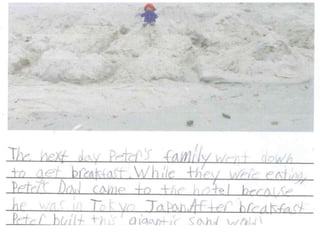 The next day Peter's family went down
to get breakfast. While they were eating,
Peter's Dad came to the hotel because
he was in Tokyo Japan. After breakfast
Peter built this gigantic sand wall!